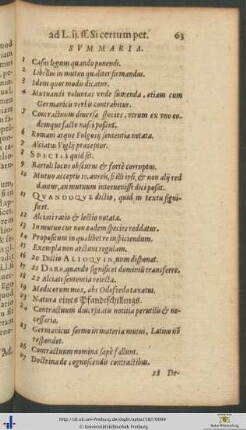 ad L.ij. ff. Si certum pet. 63
SVMMARIA.
1 Casus legum quando ponendi.
2 Libellus in mutuo qualiter firmandus.
3 Idem quot modis dicatur.
4 Mutuandi voluntas unde sumenda, etiam cum
Germanicis verbis contrahitur.
5 Contractuum diversæ species, utrum ex uno eo-
demque facto nasci possint.
6 Romani atque Fulgosij sententia notata.
7 Alciatus Vlglij præceptor.
8 SPECIES quid sit.
9 Bartoli locus obscurus & fortè corruptus.
10 Mutuo acceptis aureis, si illi ipsi, & non alij red
dantur, an mutuum intervenisse dici possit.
11 QVANDOQVE dictio, quid in textu signi-
ficet.
12 Alciati ratio & lectio notata.
13 In mutuo cur non eadem species reddatur.
14 Propositum in qualibet re inspiciendum.
15 Exempla non arctant regulam.
16 20 Dictio ALIOQVIN, non disponat.
21 DARE, quando significet dominiũ transferre.
22 Alciati sententia reiecta.
19 Medicorum mos, ab Odofredo taxatus.
23 Natura eines Pfandtschillings.
24 Contractuum notitia perutilis & ne-
cessaria.
25 Germanicus sermo in materia mutui, Latino nõ
respondet.
26 Contractuum nomina sæpè fallunt.
27 Doctrina de cognoscendis contractibus.
28 De-
http://dl.ub.uni-freiburg.de/diglit/
© Universitätsbibliothek Freiburg